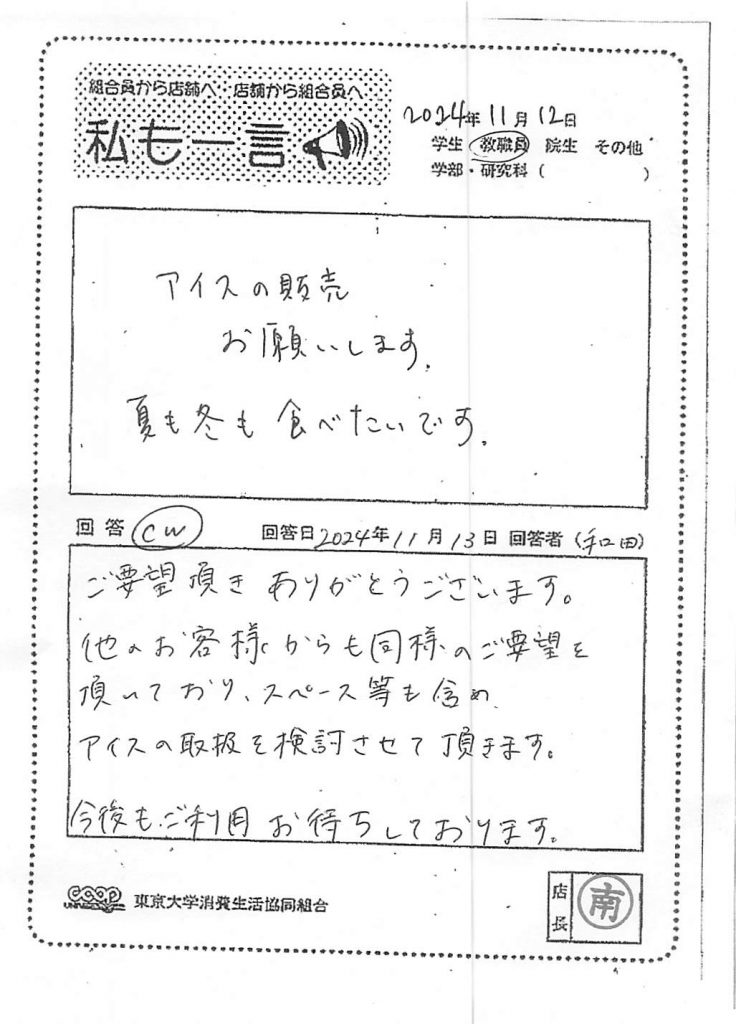 組合員から店舗へ 店舗から組合員へ
私も一言
2024年11月12日
学生 教職員 院生 その他
学部・研究科( )
アイスの販売
お願いします.
夏も冬も食べたいです.
回答 CW 回答日2024年11月13日 回答者(和田)
ご要望頂きありがとうございます。
他のお客様からも同様のご要望を
頂いており、スペース等も含め
アイスの取扱を検討させて頂きます。
今後もご利用お待ちしております。
COOP UNIVERSITY 東京大学消費生活協同組合
店長 南